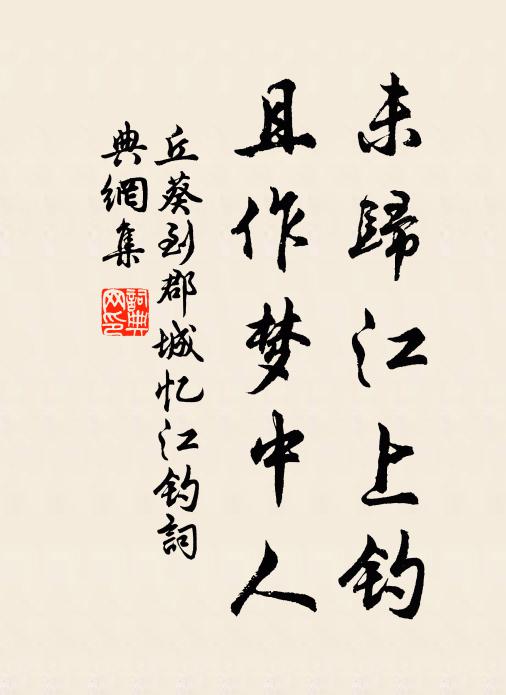 未歸江上钓
且作梦中人
丘葵到郡城忆江钓詞
典網集
詞典
网印